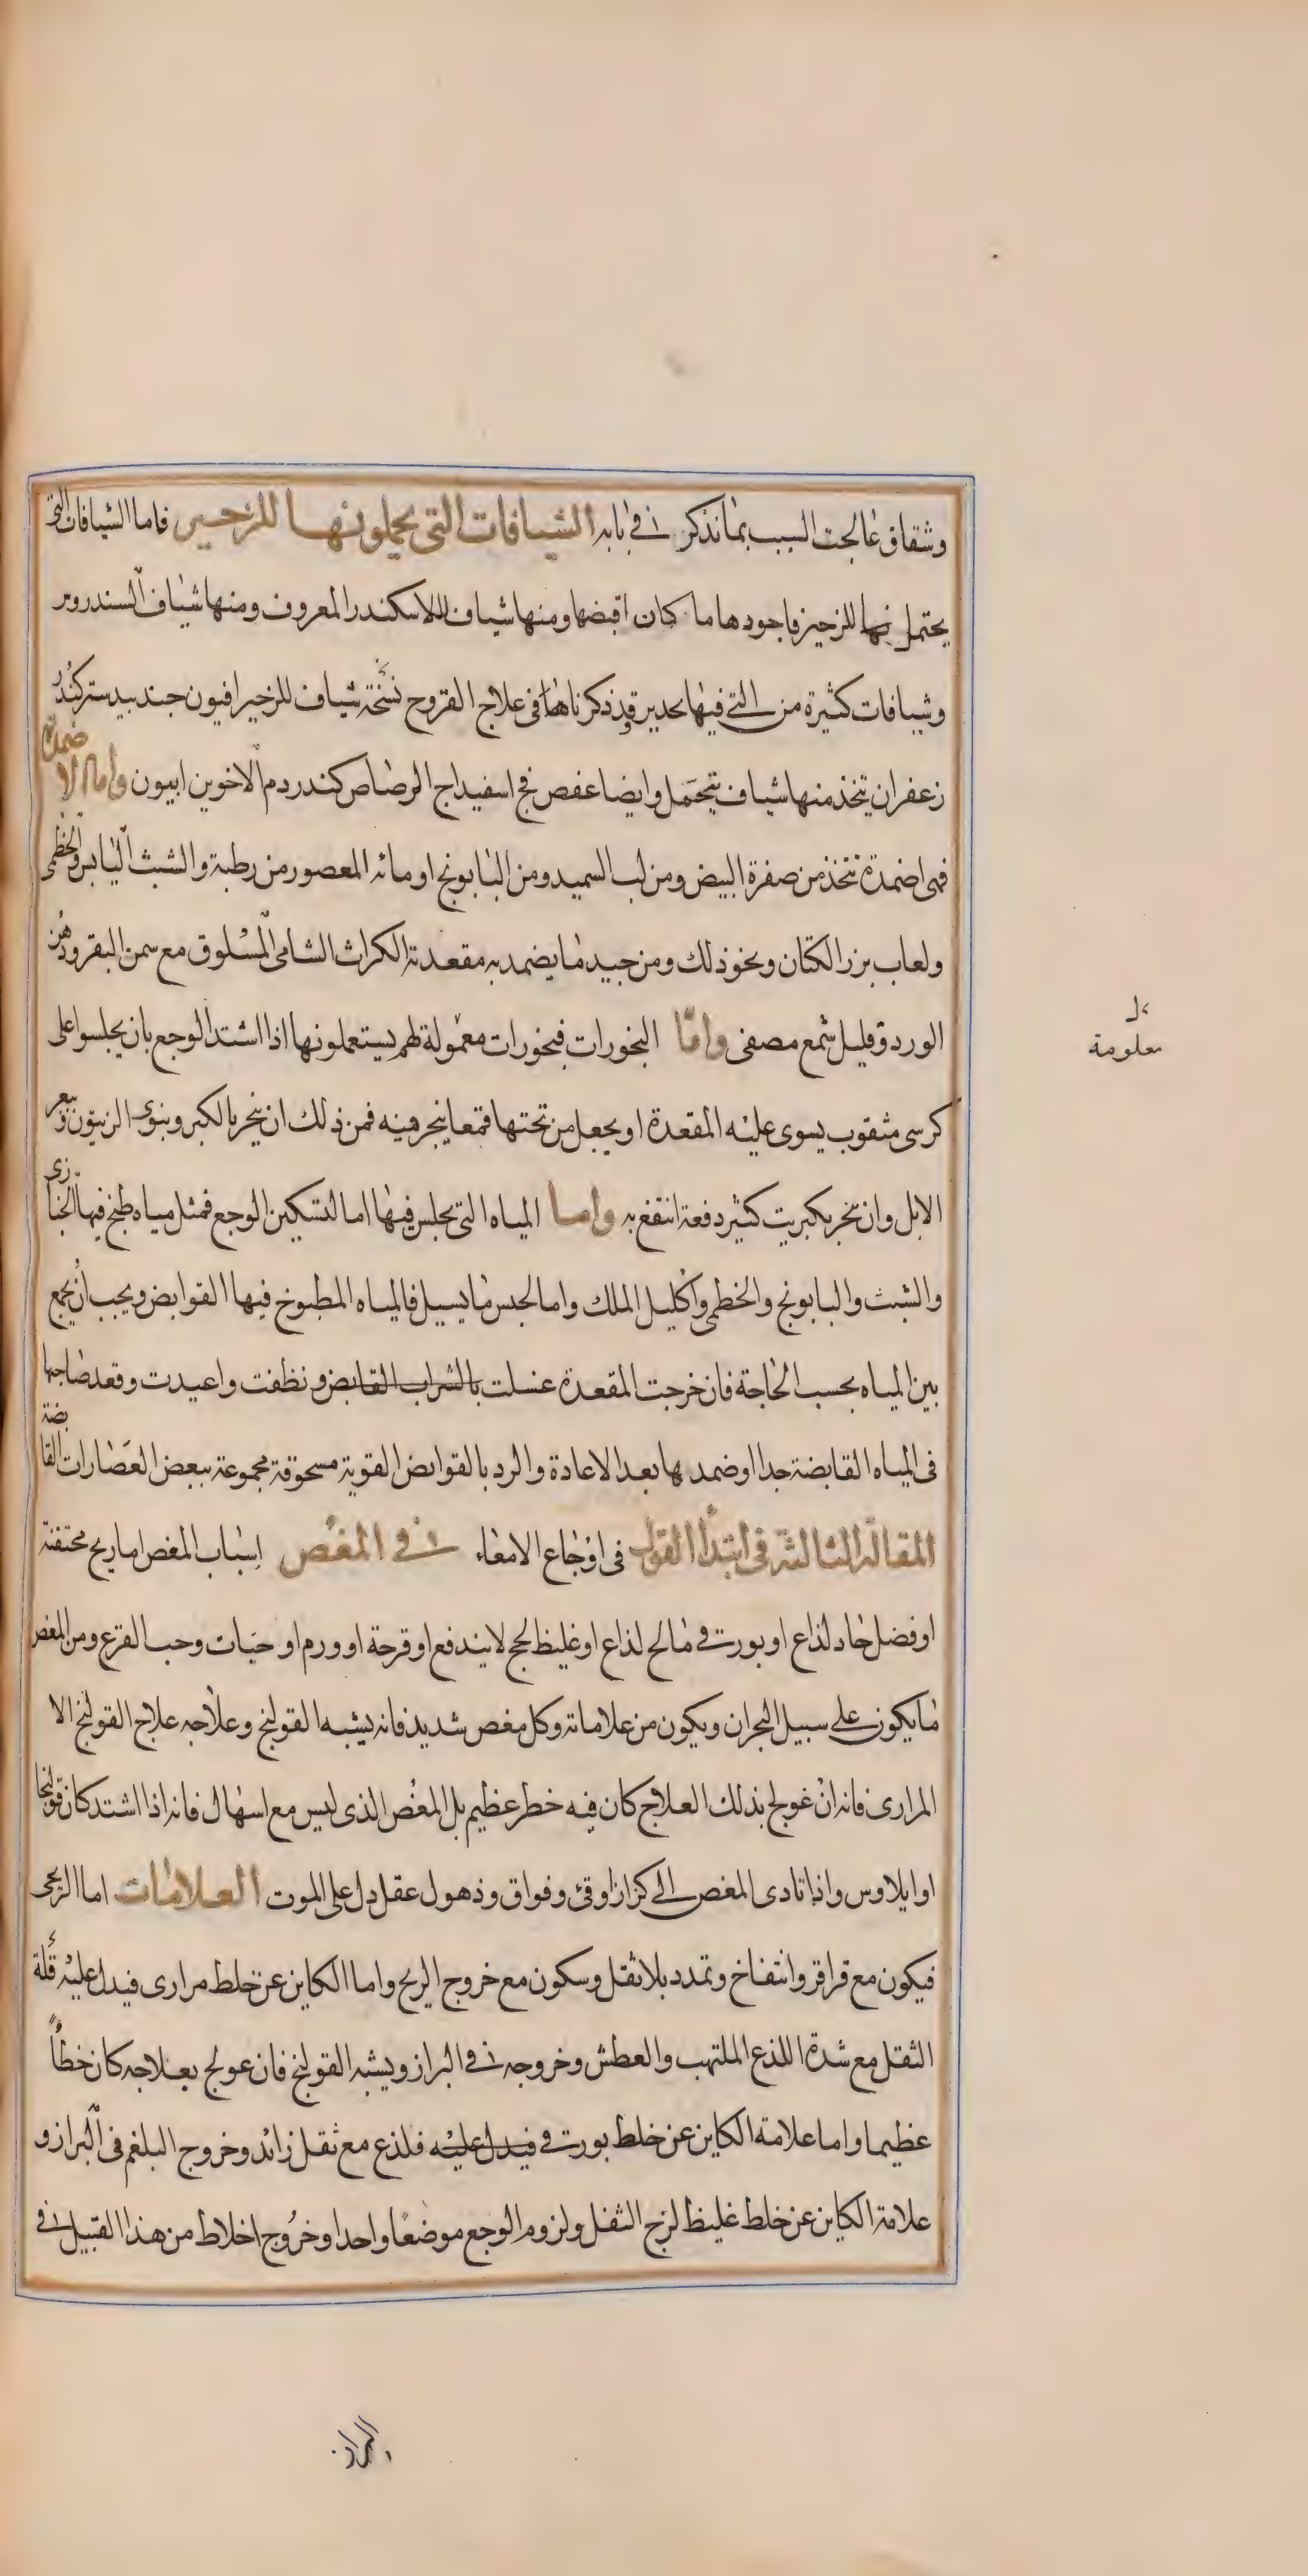 وشقاق عالجت السبب بما نذكر في بابه الشيافات التي يحملونها للزحير فاما الشيافات التي
يحتمل بها للزحير فاجودها ما كان اقبضها ومنها شياف للاسكندر المعروف ومنها شياف السندروس
وشيافات كثيرة من التي فيها تحدير قد ذكرناها في علاج القروح نسخة شياف للزحير افيون جندبيدستر كندر
زعفران يتخذ منها شياف يتحمل وايضا عفص فج اسفيداج الرصاص كندر دم الاخوين ابيون واما الاضمدة
فهي اضمدة تتخذ من صفرة البيض ومن لب السميد ومن البابونج او مائه المعصور من رطبة والشبث اليابس والخطمى
ولعاب بزر الكتان ونحو ذلك ومن جيد ما يضمد به مقعدته الكراث الشامي المسلوق مع سمن البقر ودهن
الورد وقليل شمع مصفى واما البخورات فبخورات معمولة لهم يستعملونها اذا اشتد الوجع بان يجلسوا على
كرسي مثقوب يسوى عليه المقعدة او يجعل من تحتها قمعا يبخر منه فمن ذلك ان يبخر بالكبر وبنوى الزيتون وبعر
الابل وان بخر بكبريت كثير دفعة انتفع به واما المياه التي يجلس فيها اما لتسكين الوجع فمثل مياه طبخ فيها الخبازى
والشبث والبابونج والخطمى واكليل الملك واما لحبس ما يسيل فالمياه المطبوخ فيها القوابض ويجب ان يجمع
بين المياه بحسب الحاجة فان خرجت المقعدة غسلت بالشراب القابض ونظفت واعيدت وقعد صاحبها
في المياه القابضة جدا او ضمدها بعد الاعادة والرد بالقوابض القوية مسحوقة مجموعة ببعض العصارات القابضة
المقالة الثالثة في ابتداء القول في اوجاع الامعاء في المغص اسباب المغص اما ريح محتقنة
او فضل حاد لذاع او بورقي مالح لذاع او غليظ لحج لا يندفع او قرحة او ورم او حيات وحب القرع ومن المغص
ما يكون على سبيل البحران ويكون من علاماته وكل مغص شديد فانه يشبه القولنج وعلاجه علاج القولنج الا
المرارى فانه ان عولج بذلك العلاج كان فيه خطر عظيم بل المغص الذي ليس مع اسهال فانه اذا اشتد كان قولنجا
او ايلاوس واذا تادى المغص الى كزاز او قئ وفواق وذهول عقل دل على الموت العلامات اما الريحى
فيكون مع قراقر وانتفاخ وتمدد بلا ثقل وسكون مع خروج الريح واما الكاين عن خلط مرارى فيدل عليه قلة
الثقل مع شدة اللذع الملتهب والعطش وخروجه في البراز ويشبه القولنج فان عولج بعلاجه كان خطأ
عظيما واما علامة الكاين عن خلط بورقي فيدل عليه فلذع مع ثقل زائد وخروج البلغم في البراز و
علامة الكاين عن خلط غليظ لزج الثقل ولزوم الوجع موضعا واحدا وخروج اخلاط من هذا القبيل في
معلومة
البراز